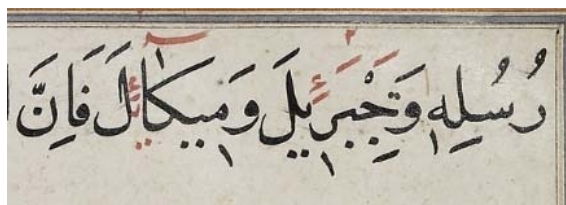 رُسُلِهٖ وَجِبْرٖيلَ وَمٖيكَالَ فَاِنَّ